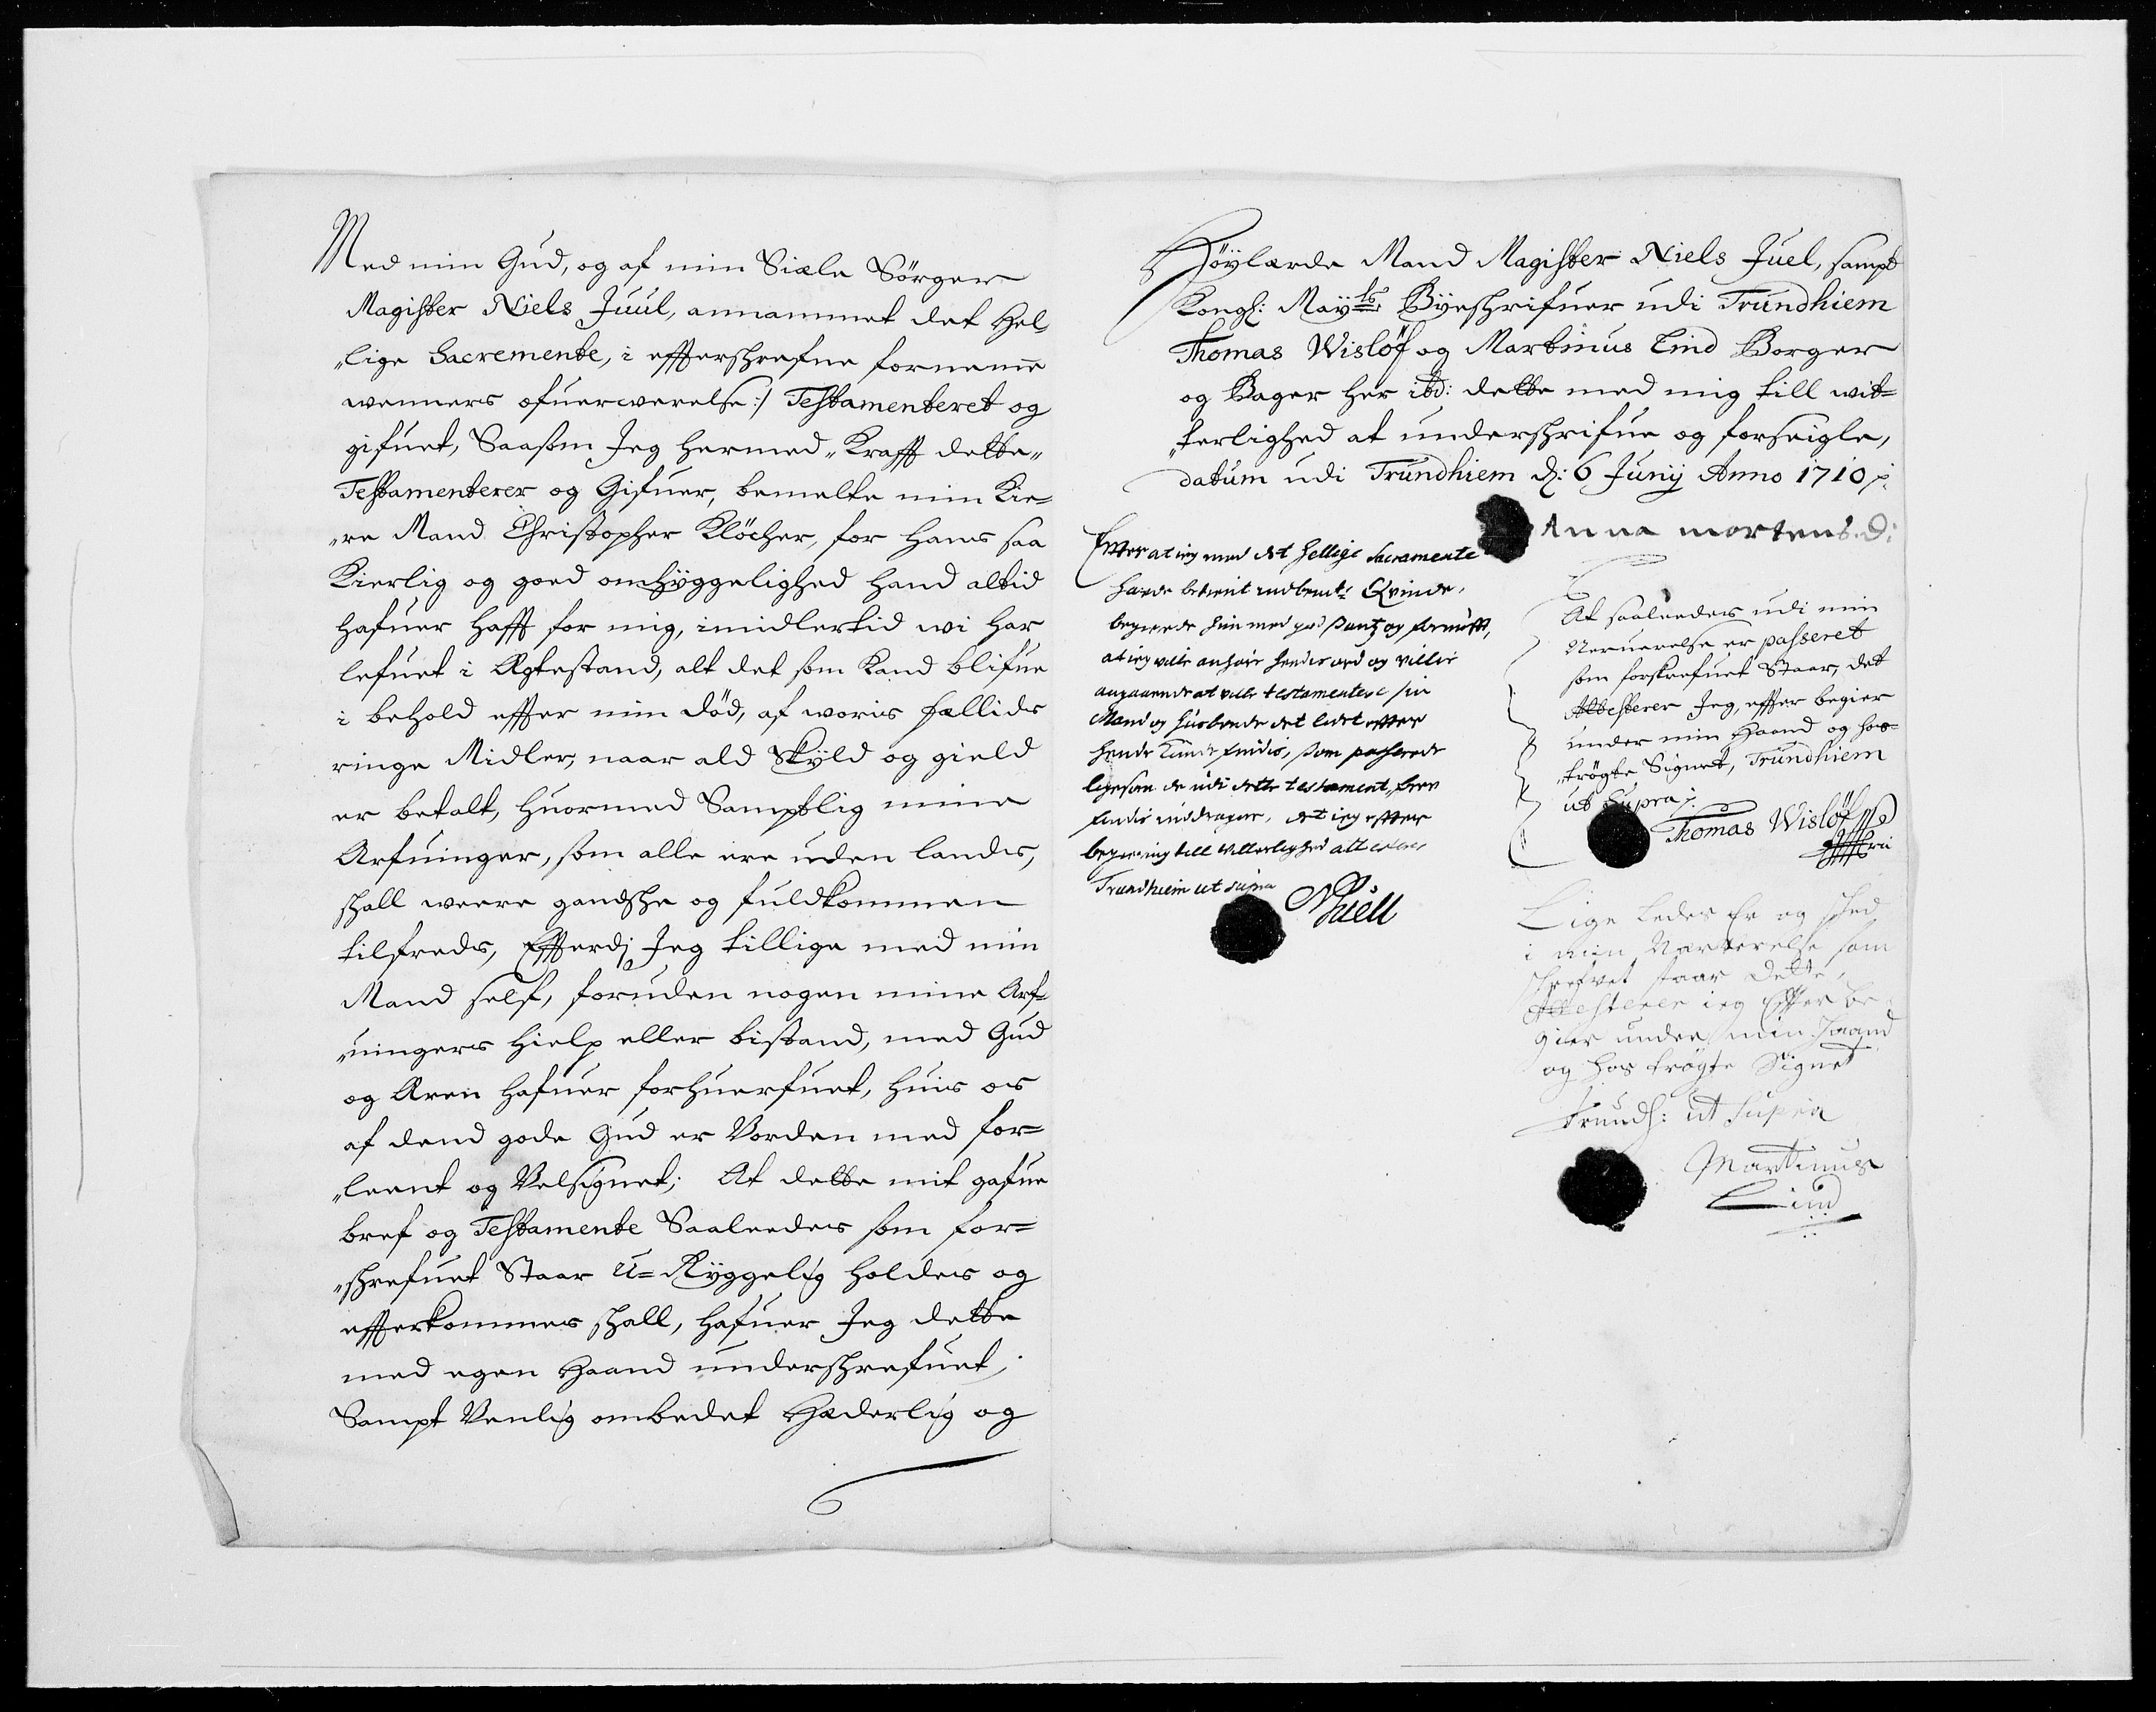 Med min Gud, og af min Siæle Sörger
Magister Niels Juul, annammet det Hel¬
"lige Sacremente, i effterschrefne fornemme
wenners ofuerwerelse :/ Testamenteret og
gifuet, Saasom Jeg hermed "Krafft dette"
Testamenterer og Gifuer, bemelte min Kie=
"re Mand Christopher Klöcher, for hans saa
Kierlig og goed omhÿggelighed hand altid
hafuer hafft for mig, imidlertid wi har
lefuet i Ægtestand, alt det som kand blifue
i behold effter min död, af woris fællids
ringe Midler, naar ald Skÿld og gield
er betalt, huormed Samptlig mine
Arfuinger, som alle ere uden lands,
schall weere gandsche og fuldkommen
tilfreds, Effterdj Jeg tillige med min
Mand self, foruden nogen mine Arf=
"uingers hielp eller bistand, med Gud
og Æren hafuer forhuerfuet, huis os
af dend gode Gud er Vorden med for=
"leent og Velsignet; At dette mit gafue
bref og Testamente Saaleedes som for=
"schrefuet Staar U=Rÿggelig holdes og
effterkommes schall, hafuer Jeg dette
med egen Haand underschrefuet,
Sampt Venlig ombedet Hæderlig og
Höÿlærde Mand Magister Niels Juel, sampt
Kongl: Maÿ:ts Bÿeschrifuer udi Trundhiem
Thomas Wislöf og Martinus Lind Borger
og Bager her ibd: dette med mig till wit=
"terlighed at underschrifue og forseigle,
datum udi Trundhiem d: 6 Junÿ Anno 1710 p.
Anna mortens.d:
Efter at ieg med det hellige Sacramente
hafde betient Qvinde,
begierede hun med god Santz og fornufft,
at ieg ville anhöre hendes ord og villie
angaaende at ville testamentere sin
Mand og husbonde det lidet efter
hende kunde findis, som passerede
ligesom de udi dette testament
findis inddragne, det ieg efter
begiering till Vitterlighed attesterer
Trundhiem ut supra
NJuell
At saaleedes udi min
Neruerelse er passeret
som forskrefuet Staar, det
Attesterer Jeg, effter begier
under min Haand og hos=
"trögte Signet, Trundhiem
ut Supra p.
Thomas Wislöf
Lige ledes Er og sched
i min Nærverelse som
schrefvet staar dette,
Attesterer ieg Effter be¬
gier under min Haand
og hos trögte Signet
Trundh: ut Supra
Martinus
Lind